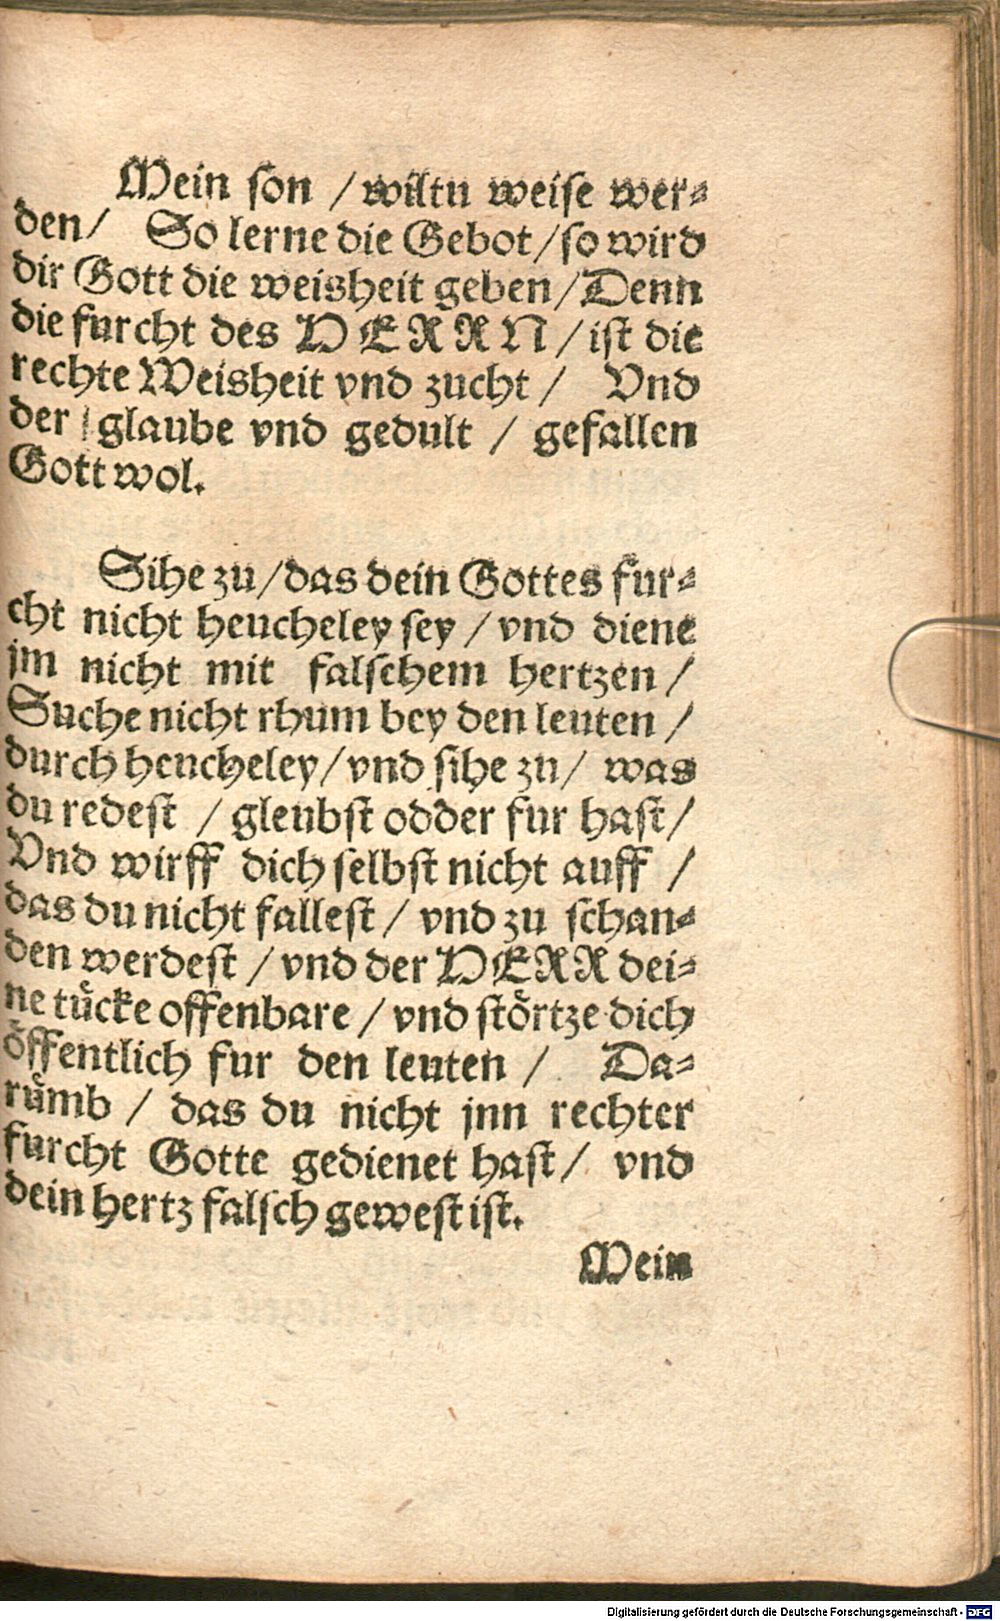 Mein son / wiltu weise wer⸗
den / So lerne die Gebot / so wird
dir Gott die weisheit geben / Denn
die furcht des HERRN / ist die
rechte Weisheit vnd zucht / Vnd
der glaube vnd gedult / gefallen
Gott wol.
Sihe zu / das dein Gottes fur⸗
cht nicht heucheley sey / vnd diene
jm nicht mit falschem hertzen /
Suche nicht rhum bey den leuten /
durch heucheley / vnd sihe zu / was
du redest / gleubst odder fur hast /
Vnd wirff dich selbst nicht auff /
das du nicht fallest / vnd zu schan⸗
den werdest / vnd der HERR dei⸗
ne tücke offenbare / vnd störtze dich
öffentlich fur den leuten / Da⸗
rümb / das du nicht jnn rechter
furcht Gotte gedienet hast / vnd
dein hertz falsch gewest ist.
Mein
Digitalisierung gefördert durch die Deutsche Forschungsgemeinschaft - DFG